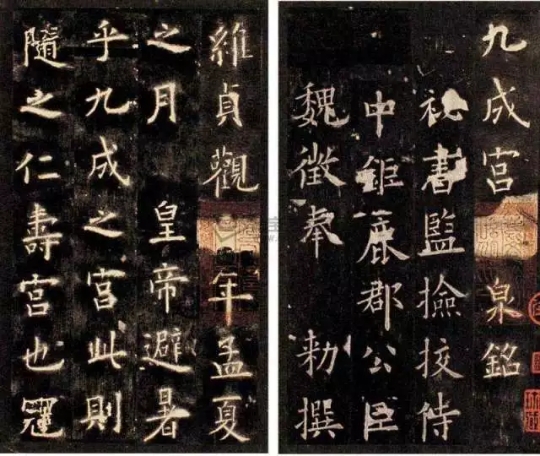 九成宮 泉銘
祕書監撿挍侍
中鉅鹿郡公臣
魏徵奉 勑撰
維貞觀 年孟夏
之月 皇帝避暑
乎九成之宮此則
隨之仁壽宮也冠